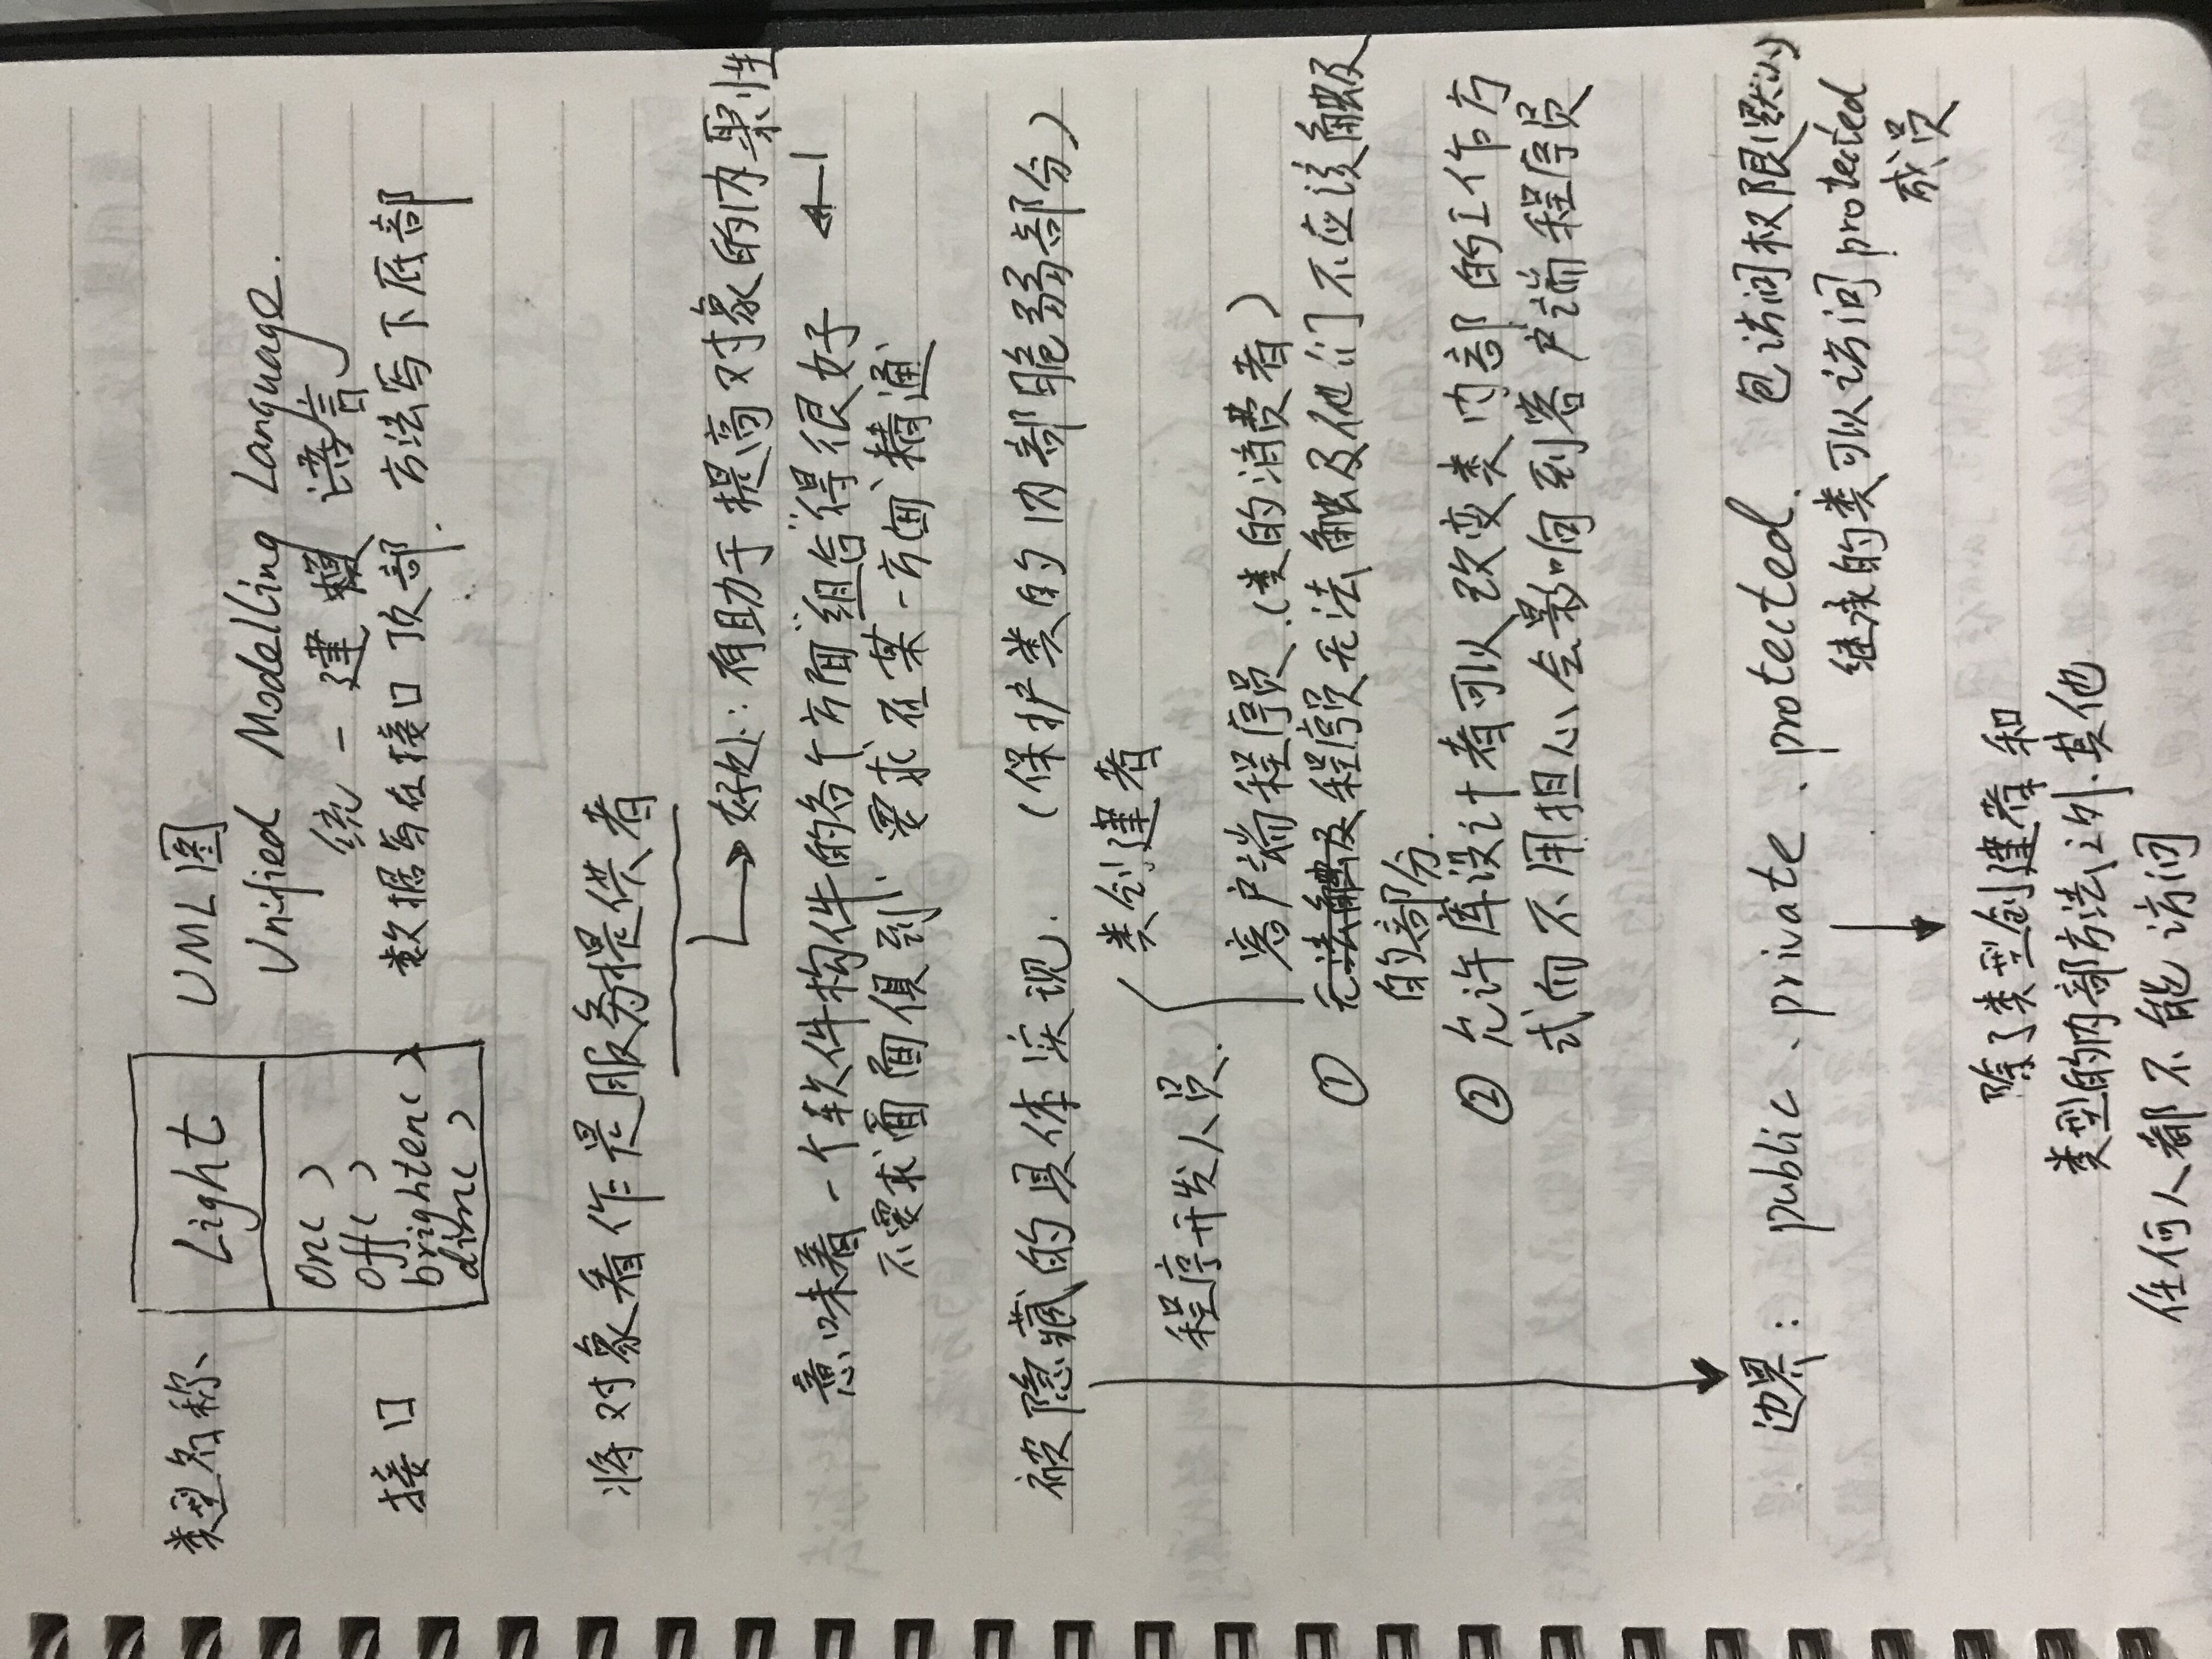 类型名称 Light UML图
Unified Modelling Language.
统一建模语言
接口 on( )
off( )
brighten( )
dim( )
数据写在接口顶部. 方法写下底部
将对象看作是服务提供者
好处: 有助于提高对象的内聚性
意味着一个软件构件的各个方面"组合"得很好
不要求面面俱到 要求在某一方面精通
被隐藏的具体实现. (保护类的内部脆弱部分)
类创建者
程序开发人员.
客户端程序员.(类的消费者)
① 无法触及程序员无法触及他们不应该触及
的部分.
② 允许库设计者可以改变类内部的工作方
式而不用担心会影响到客户端程序员
边界: public、private、protected. 包访问权限(默认)
继承的类可以访问protected
成员
除了类型创建者和
类型的内部方法之外.其他
任何人都不能访问